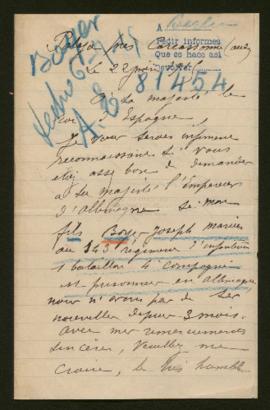 A Berlin
Pedir informes
Que se hace así
Devolver
Boyer
81454
près Carcassonne (Aude)
Le 22 juin
A Sa majesté le
roi d'Espagne,
Je vous serais infiniment
reconnaissante si vous
étiez assez bon de demander
à Sa majesté l'Empereur
d'Allemagne si mon
fils Boyer Joseph
au 343 régiment d'infanterie
1 bataillon 4 compagnie
est prisonnier en Allemagne
nous n'avons pas de ses
nouvelles depuis 3 mois.
avec mes remerciements
sincères, Veuillez me
croire, le très humble